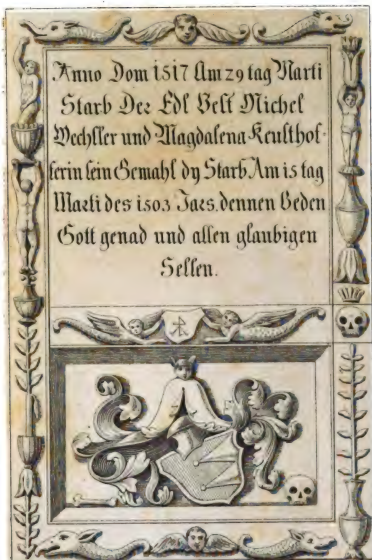 Anno Dom 1517 Am 29 tag Marti
Starb Der Edl Vest Michel
Wechsller und Magdalena Keusthof-
ferin sein Gemahl dy Starb Am 15 tag
Marti des 1503 Jars. dennen Beden
Gott genad und allen glaubigen
Sellen.